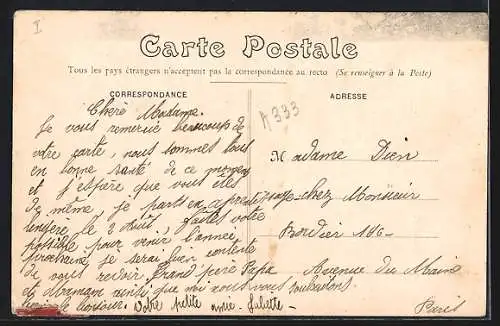 I
Carte Postale
Tous les pays étrangers n'acceptent pas la correspondance au recto (Se renseigner à la Poste)
CORRESPONDANCE
Cherè Madame.
Je vous remercie beaucoup de
votre carte, nous sommes tous
en bonne santé de ce moment
et j'espère que vous êtes
de même, je parts en
le 2 Août, faites votre
possible pour venir l'année
prochaine, je serai bien contente
de vous revoir, Grand père Papa
et Maman ainsi que moi nous vous souhaitons
bonjour. Votre petite amie. Juliette -
ADRESSE
A 333
Madame Dien
chez Monsieur
Bordier 186-
Avenue du Maine
Paris